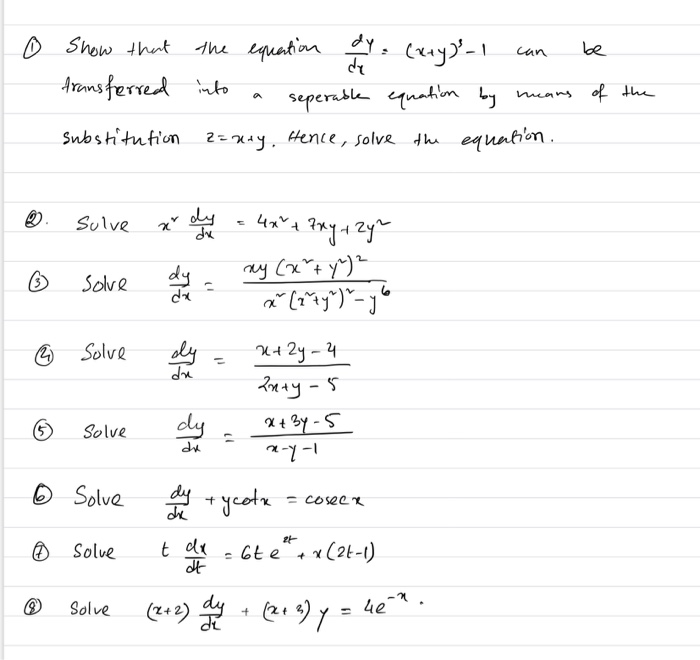 ① Show that the equation dy/dx = (x+y)³ - 1 can be
transferred into a seperable equation by means of the
substitution z = x+y. Hence, solve the equation.
②. Solve x² dy/dx = 4x² + 7xy + 2y²
③ Solve dy/dx = xy (x² + y²)² / x² (x²+y²)² - y⁶
④ Solve dy/dx = x + 2y - 4 / 2x + y - 5
⑤ Solve dy/dx = x + 3y - 5 / x - y - 1
⑥ Solve dy/dx + y cotx = cosec x
⑦ Solve t dx/dt = 6t e^2t + x (2t-1)
⑧ Solve (x+2) dy/dx + (x+3) y = 4e^-x .